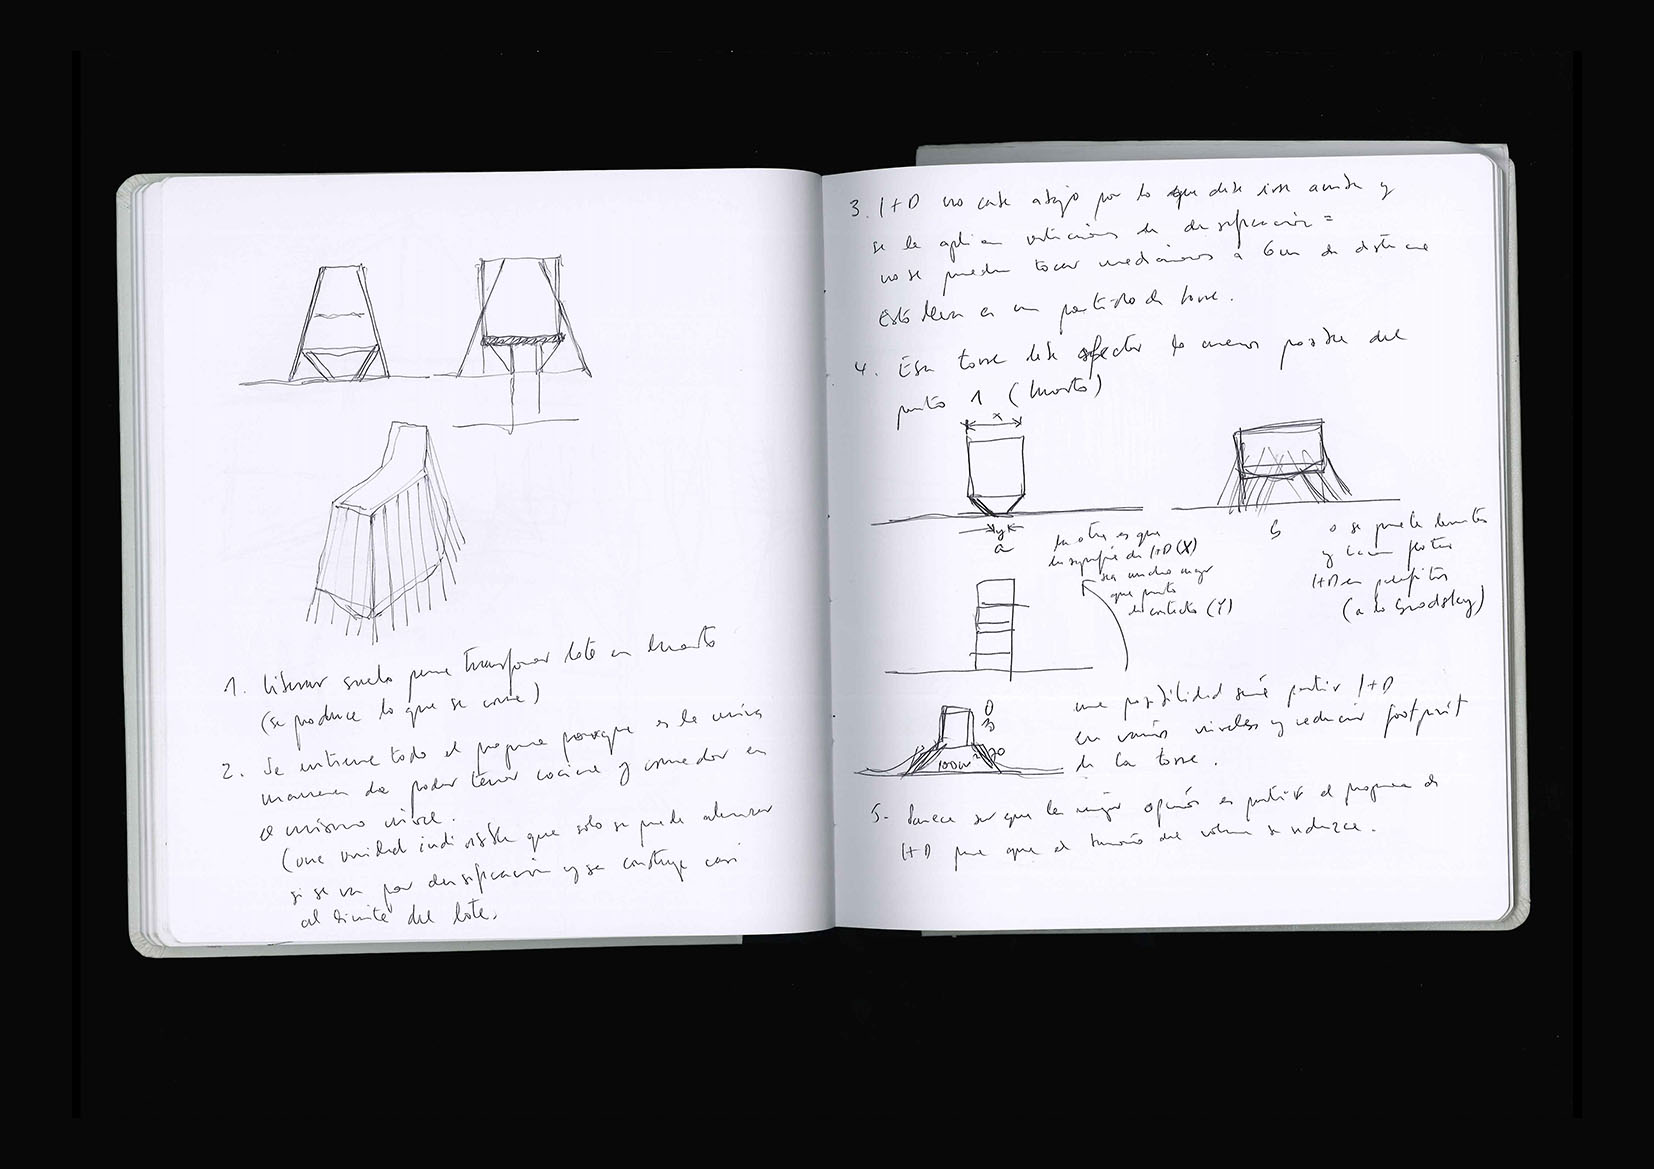 1. Liberar suelo para transformar lote en huerto
(se produce lo que se come)
2. Se entierra todo el programa porque es la única
manera de poder tener cocina y comedor en
el mismo nivel.
(una unidad indivisible que solo se puede alcanzar
si se va por densificación y se construye casi
al límite del lote.
3. I+D no cabe abajo por lo que debe irse arriba y
se le aplican de densificación =
no se pueden tocar medianeros a 6m de distancia
Esto lleva a un partido de torre.
4. Esa torre debe afectar lo menos posible del
punto 1 (huerto)
x
y
a
la otra es que
la superficie de I+D (X)
sea mucho mayor
que punto
de contacto (Y)
b
o se puede levantar
y hacer flotar
I+D en palafitos
(a lo Brodsky)
100m²
una posibilidad sería partir I+D
en varios niveles y reducir footprint
de la torre.
5. Parece ser que la mejor opción es partir el programa de
I+D para que el tamaño del volumen se reduzca.